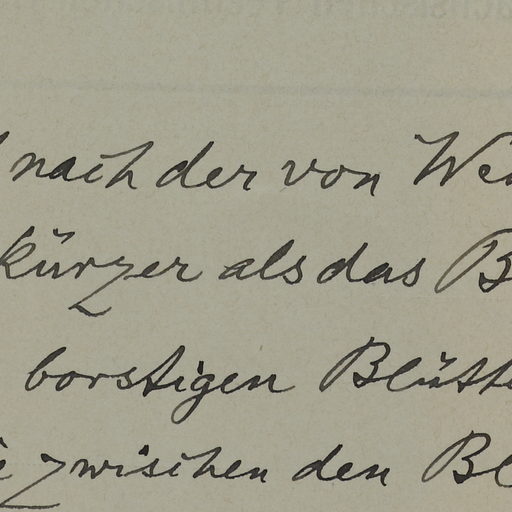 nach der von We
kürzer als das B
borstigen Blütt
zwischen den Bl